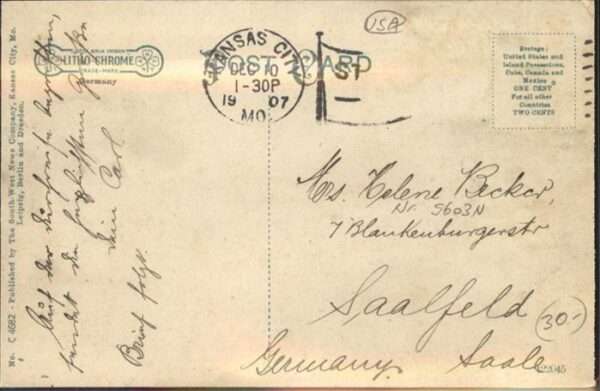 No. C 4682 - Published by The South West News Company, Kansas City, Mo.
Leipzig, Berlin and Dresden.
LITHO-CHROME
TRADE-MARK
Germany
Auf der
sendet die herzlichsten Grüße
Dein Carl
Brief folgt.
POST CARD
KANSAS CITY
DEC 10
1-30P
19 07
MO.
ST
USA
Postage:
United States and
Island Possessions,
Cuba, Canada and
Mexico
ONE CENT
For all other
Countries
TWO CENTS
Mrs. Helene Becker,
Nr. 5603N
7 Blankenburgerstr
Saalfeld
30.-
Germany Saale